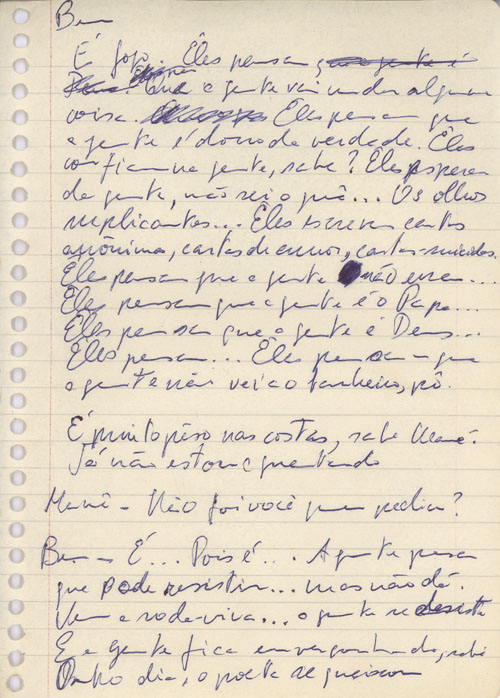 Ben
É fogo. Êles pensam que a gente é
Deus. Que a gente vai mudar alguma
coisa. Eles pensam que
a gente é dono da verdade. Êles
confiam na gente, sabe? Êles esperam
da gente, não sei o quê... Os olhos
suplicantes... Êles escrevem cartas
anônimas, cartas de amor, cartas-suicidas.
Êles pensam que a gente não erra...
Êles pensam que a gente é o Papa...
Êles pensam que a gente é Deus...
Êles pensam... Êles pensam que
a gente não vai ao banheiro, pô.
É muito pêso nas costas, sabe Mané?
Já não estou aguentando
Mané - Não foi você quem pediu?
Ben - É... Pois é... A gente pensa
que pode resistir... mas não dá.
Vem a roda-viva... a gente desista
E a gente fica envergonhado, sabe
Outro dia, o poeta se queixou